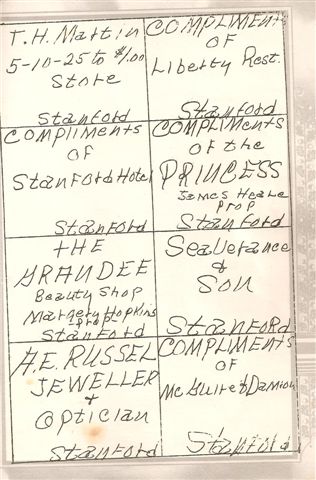 T.H. Martin
5-10-25 to $1.00
Store
Stanford
COMPLIMENTS
OF
Liberty Rest.
Stanford
COMPLIMENTS
OF
Stanford Hotel
Stanford
COMPLIMENTS
OF the
PRINCESS
James Heare
Prop
Stanford
THE
GRANDEE
Beauty Shop
Margery Hopkins
Prop
Stanford
Seaverance
&
Son
STANFORD
A.E. RUSSEL
JEWELLER
+
Optician
Stanford
COMPLIMENTS
OF
McGuire & Damion
Stanford